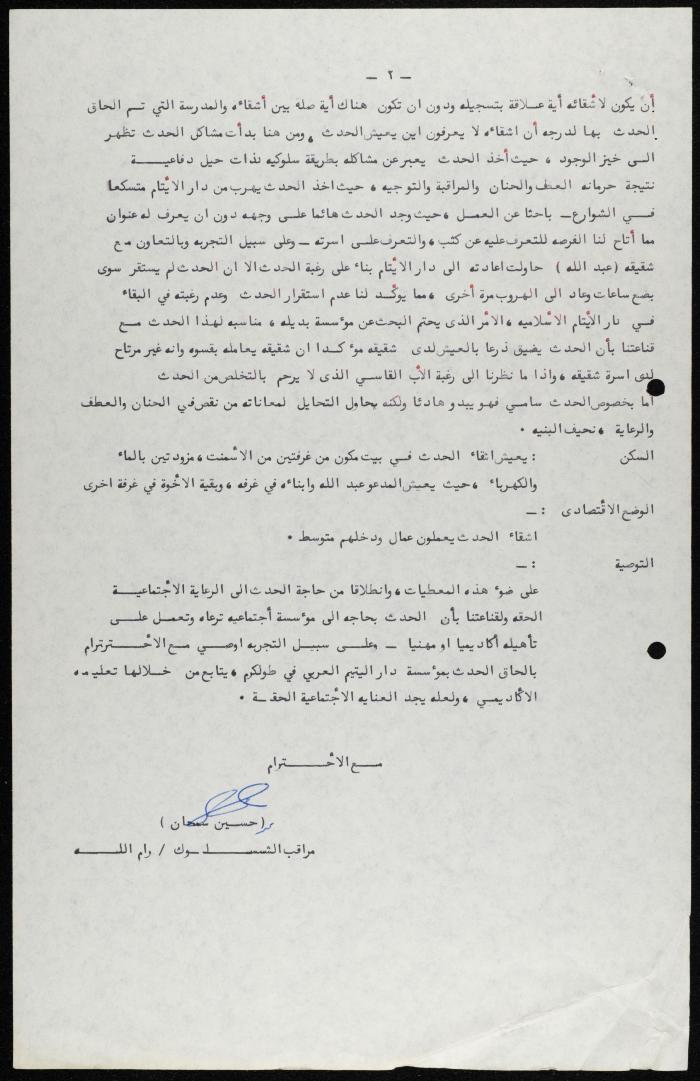 — ٢ —
أن يكون لأشقائه أية علاقة بتسجيله ودون ان تكون هناك أية صله بين أشقاءه والمدرسة التي تم الحاق
الحدث بها لدرجه أن اشقاءه لا يعرفون اين يعيش الحدث ، ومن هنا بدأت مشاكل الحدث تظهر
الى خيز الوجود ، حيث أخذ الحدث يعبر عن مشاكله بطريقة سلوكيه لذات حيل دفاعية
نتيجة حرمانه العطف والحنان والمراقبة والتوجيه ، حيث اخذ الحدث يهرب من دار الأيتام متسكعا
في الشوارع — باحثا عن العمل ، حيث وجد الحدث هائما على وجهه دون ان يعرف له عنوان
مما أتاح لنا الفرصه للتعرف عليه عن كثب ، والتعرف على اسرته — وعلى سبيل التجربه وبالتعاون مع
شقيقه (عبد الله ) حاولت اعادته الى دار الأيتام بناء على رغبة الحدث الا ان الحدث لم يستقر سوى
بضع ساعات وعاد الى الهروب مرة أخرى ، مما يوكد لنا عدم استقرار الحدث وعدم رغبته في البقاء
في دار الأيتام الأسلاميه ، الأمر الذى يحتم البحث عن موسسة بديله ، مناسبه لهذا الحدث مع
قناعتنا بأن الحدث يضيق ذرعا بالعيش لدى شقيقه موكدا ان شقيقه يعامله بقسوه وانه غير مرتاح
لدى اسرة شقيقه ، واذا ما نظرنا الى رغبة الأب القاسي الذى لا يرحم بالتخلص من الحدث
اما بخصوص الحدث سامي فهو يبدو هادئا ولكنه يحاول التحايل لمعاناته من نقص في الحنان والعطف
والرعاية ، نحيف البنيه .
السكن : يعيش اشقاء الحدث في بيت مكون من غرفتين من الأسمنت ، مزودتين بالماء
والكهرباء ، حيث يعيش المدعو عبد الله وابناءه في غرفه ، وبقية الأخوة في غرفة اخرى
الوضع الاقتصادى : —
اشقاء الحدث يعملون عمال ودخلهم متوسط .
التوصية : —
على ضوء هذه المعطيات ، وانطلاقا من حاجة الحدث الى الرعاية الأجتماعية
الحقه ولقناعتنا بأن الحدث بحاجه الى موسسة أجتماعيه ترعاه وتعمل على
تأهيله أكاديميا او مهنيا — وعلى سبيل التجربه اوصي مع الأحترترام
بالحاق الحدث بموسسة دار اليتيم العربي في طولكرم ، يتابع من خلالها تعليمه
الأكاديمي ، ولعله يجد العنايه الأجتماعية الحقة .
مع الأحترام
(حسين سمحان )
مراقب السلوك / رام الله